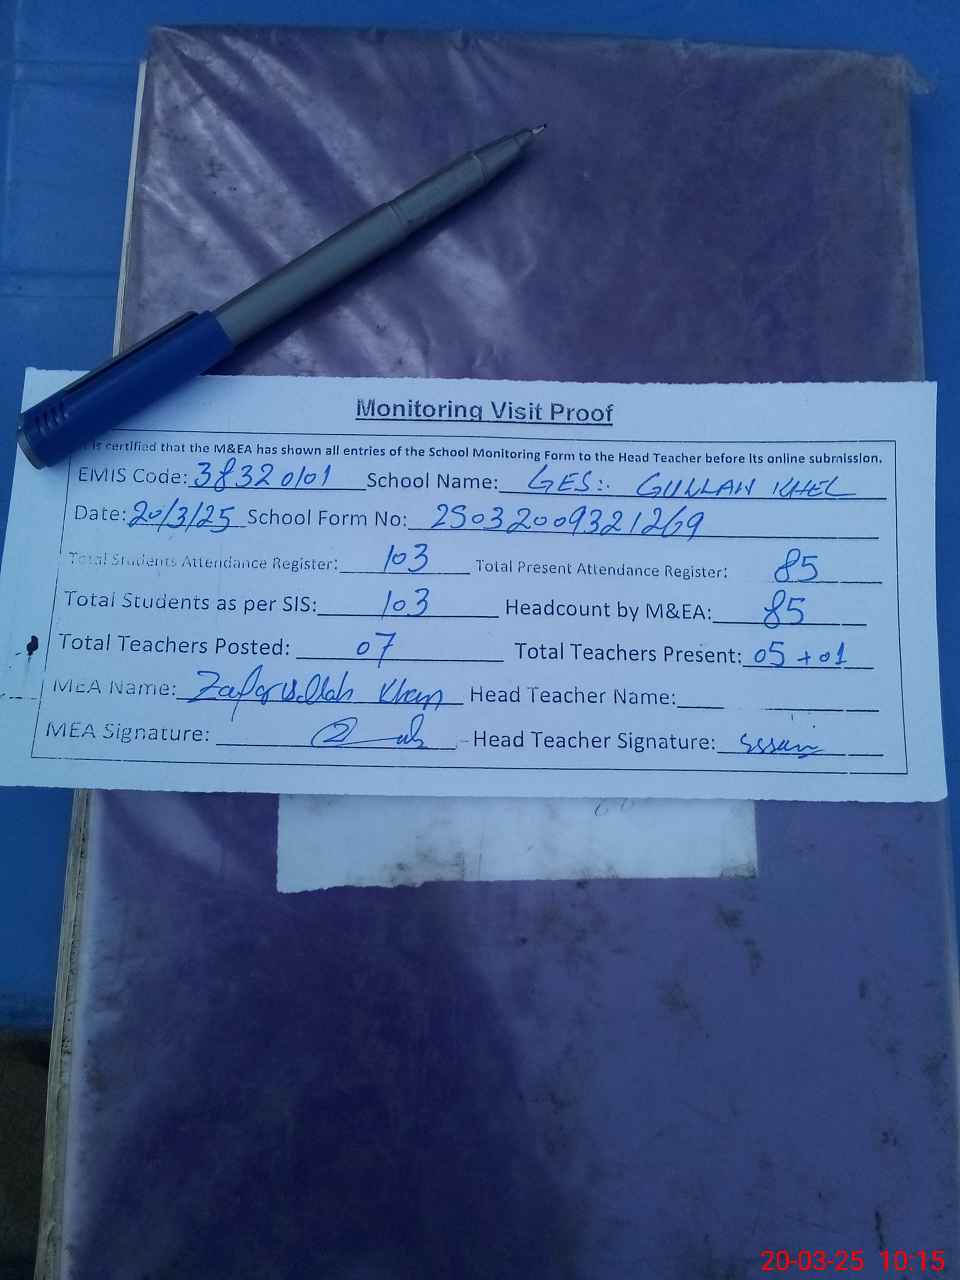 Monitoring Visit Proof
is certified that the M&EA has shown all entries of the School Monitoring Form to the Head Teacher before its online submission.
EMIS Code: 38320101 School Name: GES:. GULLAN KHEL
Date: 20/3/25 School Form No: 25032009321269
Total Students Attendance Register: 103 Total Present Attendance Register: 85
Total Students as per SIS: 103 Headcount by M&EA: 85
Total Teachers Posted: 07 Total Teachers Present: 05 + 01
MEA Name: Zafarullah Khan Head Teacher Name:
MEA Signature: Head Teacher Signature:
20-03-25 10:15